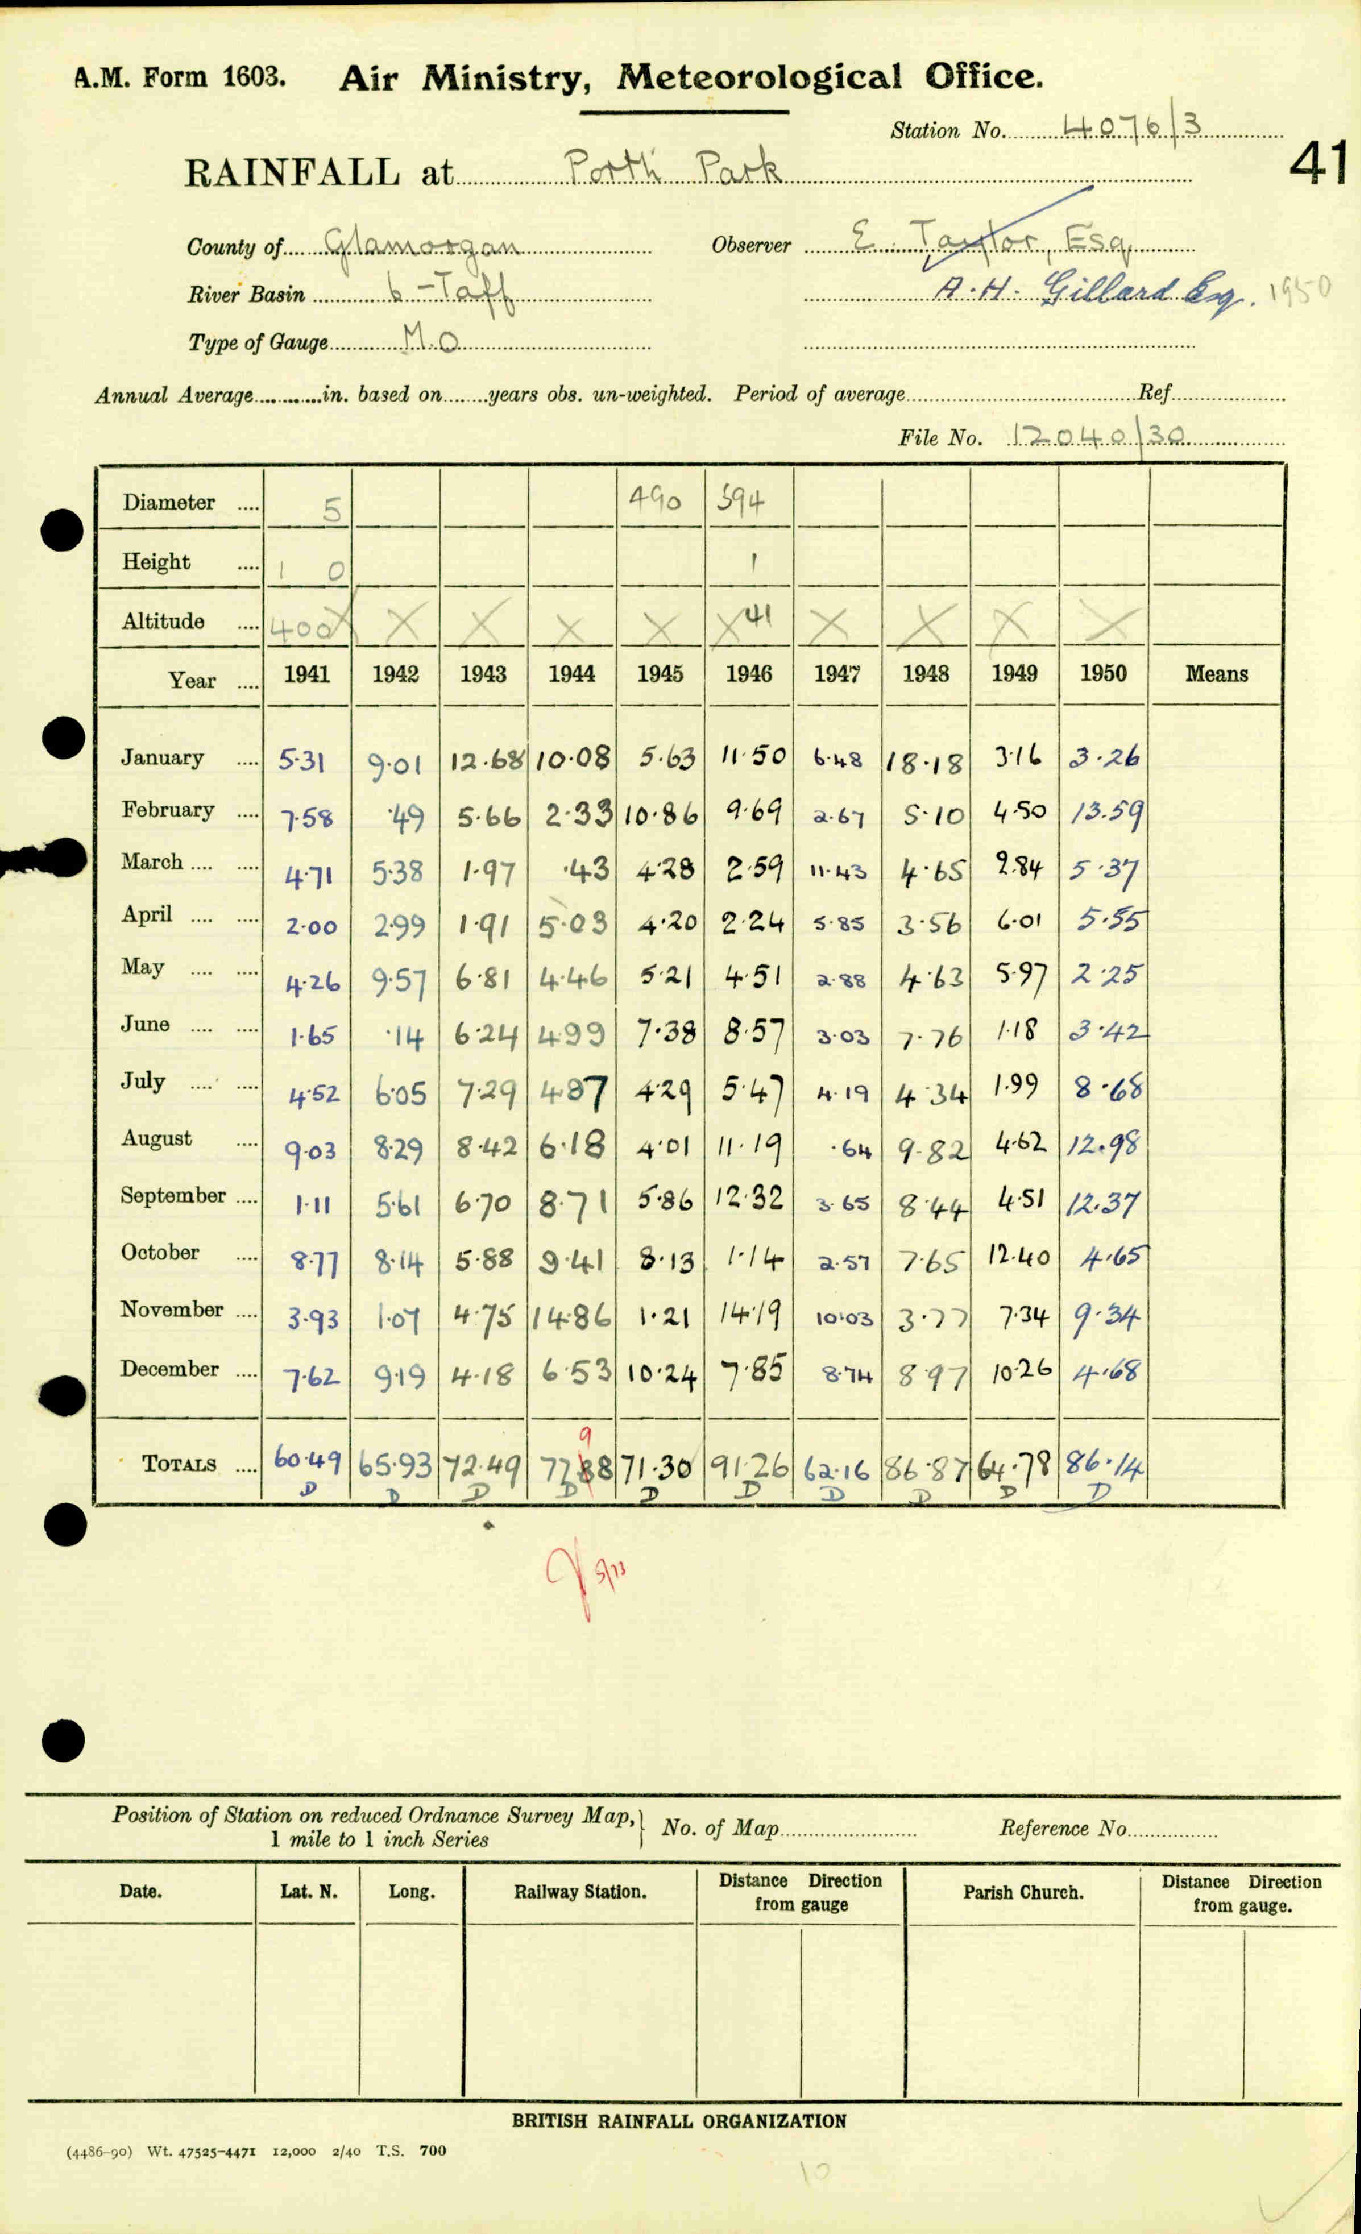 A.M. Form 1603. Air Ministry, Meteorological Office.
Station No. 4076/3
41
RAINFALL at Porth Park
County of Glamorgan Observer E. Taylor, Esq
River Basin 6-Taff A.H. Gillard Esq. 1950
Type of Gauge M.O
Annual Average in. based on years obs. un-weighted. Period of average Ref
File No. 12040/30
Diameter 5 490 594
Height 1 0 1
Altitude 400 X X X X X X 41 X X X X
Year 1941 1942 1943 1944 1945 1946 1947 1948 1949 1950 Means
January 5.31 9.01 12.68 10.08 5.63 11.50 6.48 18.18 3.16 3.26
February 7.58 .49 5.66 2.33 10.86 9.69 2.67 5.10 4.50 13.59
March 4.71 5.38 1.97 .43 4.28 2.59 11.43 4.65 2.84 5.37
April 2.00 2.99 1.91 5.03 4.20 2.24 5.85 3.56 6.01 5.55
May 4.26 9.57 6.81 4.46 5.21 4.51 2.88 4.63 5.97 2.25
June 1.65 .14 6.24 4.99 7.38 8.57 3.03 7.76 1.18 3.42
July 4.52 6.05 7.29 4.87 4.29 5.47 4.19 4.34 1.99 8.68
August 9.03 8.29 8.42 6.18 4.01 11.19 .64 9.82 4.62 12.98
September 1.11 5.61 6.70 8.71 5.86 12.32 3.65 8.44 4.51 12.37
October 8.77 8.14 5.88 9.41 8.13 1.14 2.57 7.65 12.40 4.65
November 3.93 1.07 4.75 14.86 1.21 14.19 10.03 3.77 7.34 9.34
December 7.62 9.19 4.18 6.53 10.24 7.85 8.74 8.97 10.26 4.68
9
TOTALS 60.49 65.93 72.49 77.88 71.30 91.26 62.16 86.87 64.78 86.14
D D D D D D D D D D
5/73
Position of Station on reduced Ordnance Survey Map, 1 mile to 1 inch Series No. of Map Reference No.
Date. Lat. N. Long. Railway Station. Distance Direction from gauge Parish Church. Distance Direction from gauge.
BRITISH RAINFALL ORGANIZATION
(4486-90) Wt. 47525-4471 12,000 2/40 T.S. 700
10